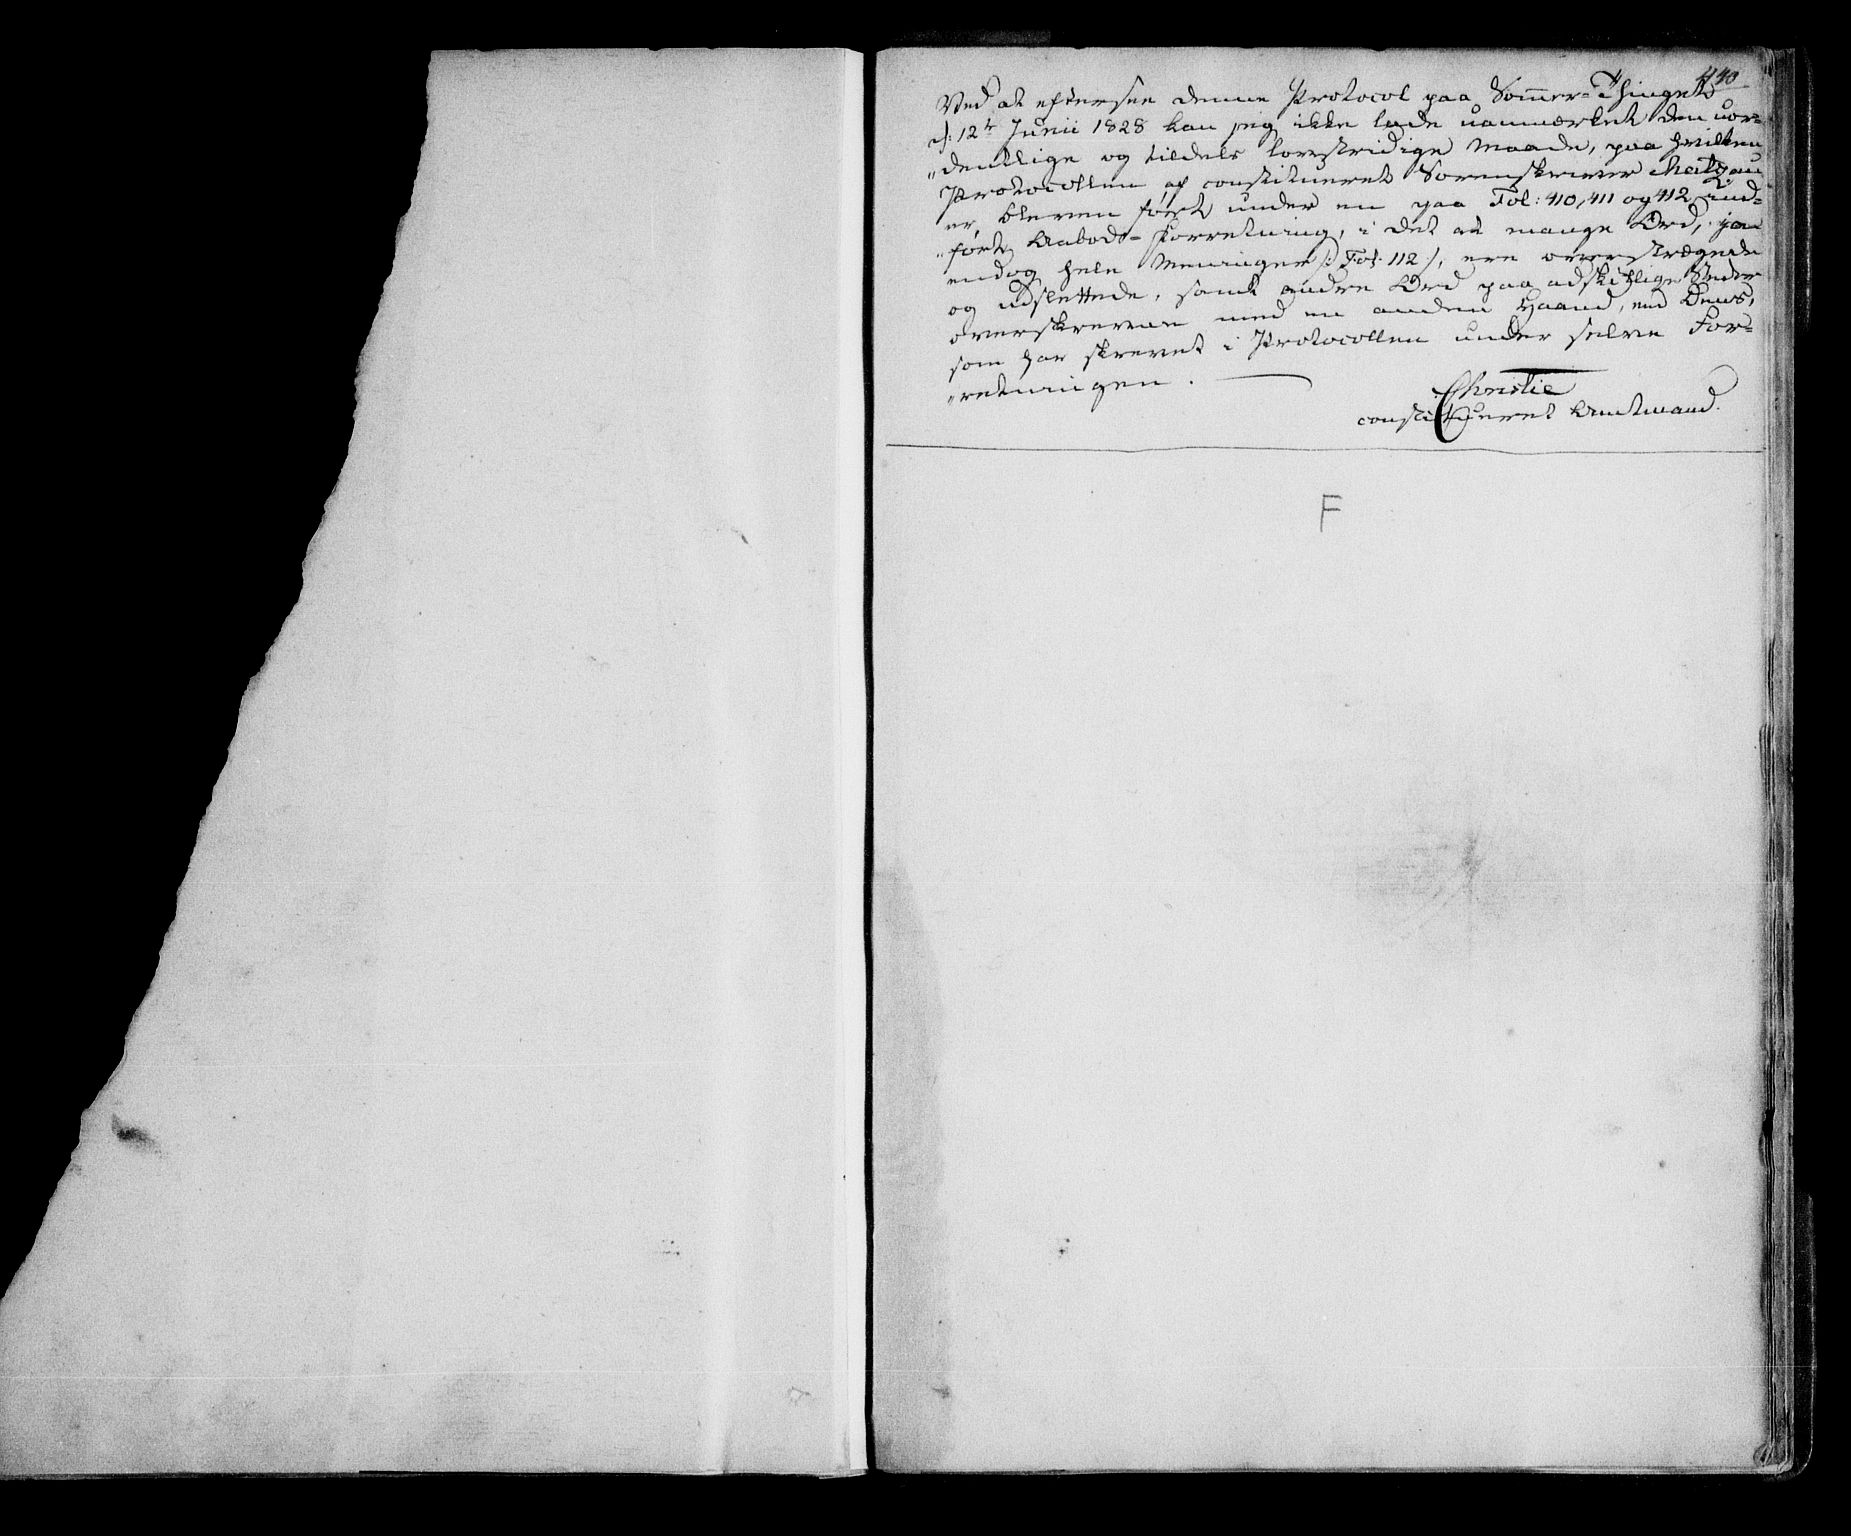 440
Ved at eftersee denne Protocol paa Sommer-Thinget
d: 12te Junii 1828 kan jeg ikke lade uanmærket den uor-
„dentlige og tildels lovstridige Maade, paa hvilken
Protocollen af constitueret Sorenskriver
er bleven ført under en paa Fol: 410, 411 og 412 ind-
„ført Aabods-Forretning, i det at mange Ord, ja
endog hele Meninger /: Fol. 112 /, ere overstrægede
og udslettede, samt andre Ord paa adskillige Steder
overskrevne med en anden Haand, end Dens,
som har skrevet i Protocollen under selve For-
„retningen.
Christie
constitueret Amtmand.
F